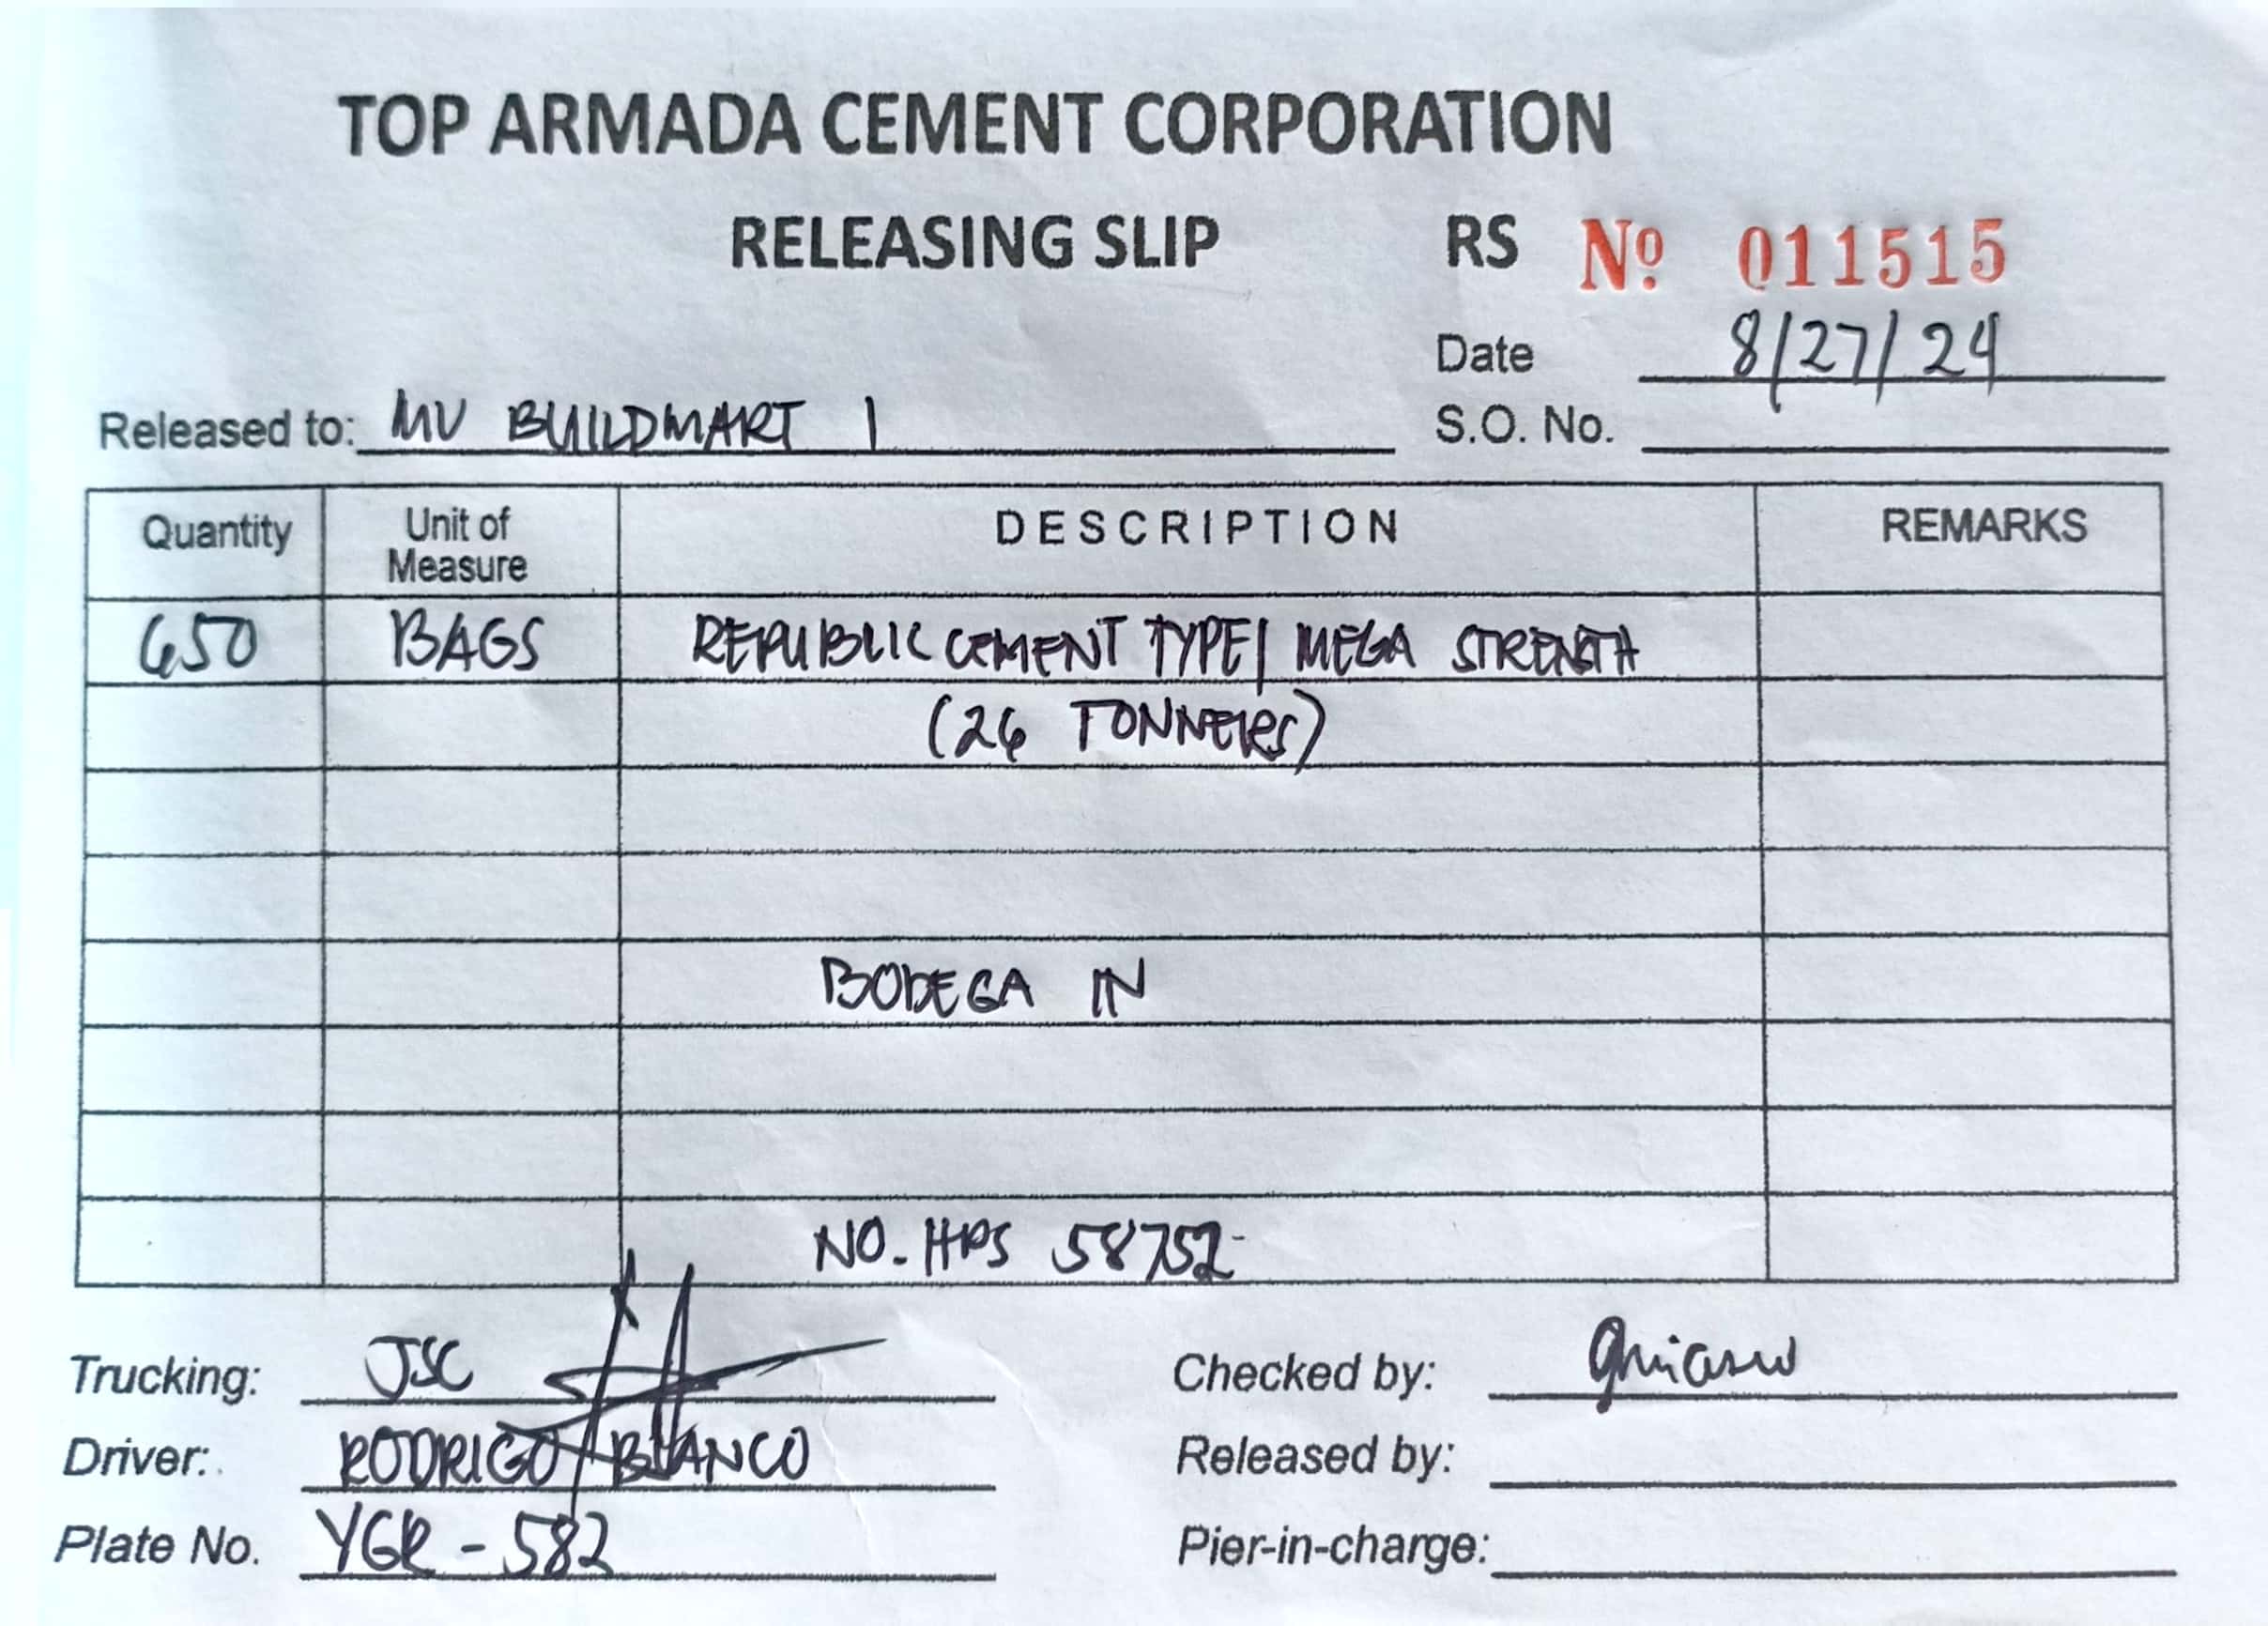 TOP ARMADA CEMENT CORPORATION
RELEASING SLIP RS Nº 011515
Date 8/27/24
Released to: MV BUILDMART 1
S.O. No.
Quantity Unit of Measure DESCRIPTION REMARKS
650 BAGS REPUBLIC CEMENT TYPE 1 MEGA STRENGTH
(26 TONNERS)
BODEGA IN
NO. HPS 58752
Trucking: JSC
Checked by:
Driver: RODRIGO BLANCO
Released by:
Plate No. YGR - 582
Pier-in-charge: